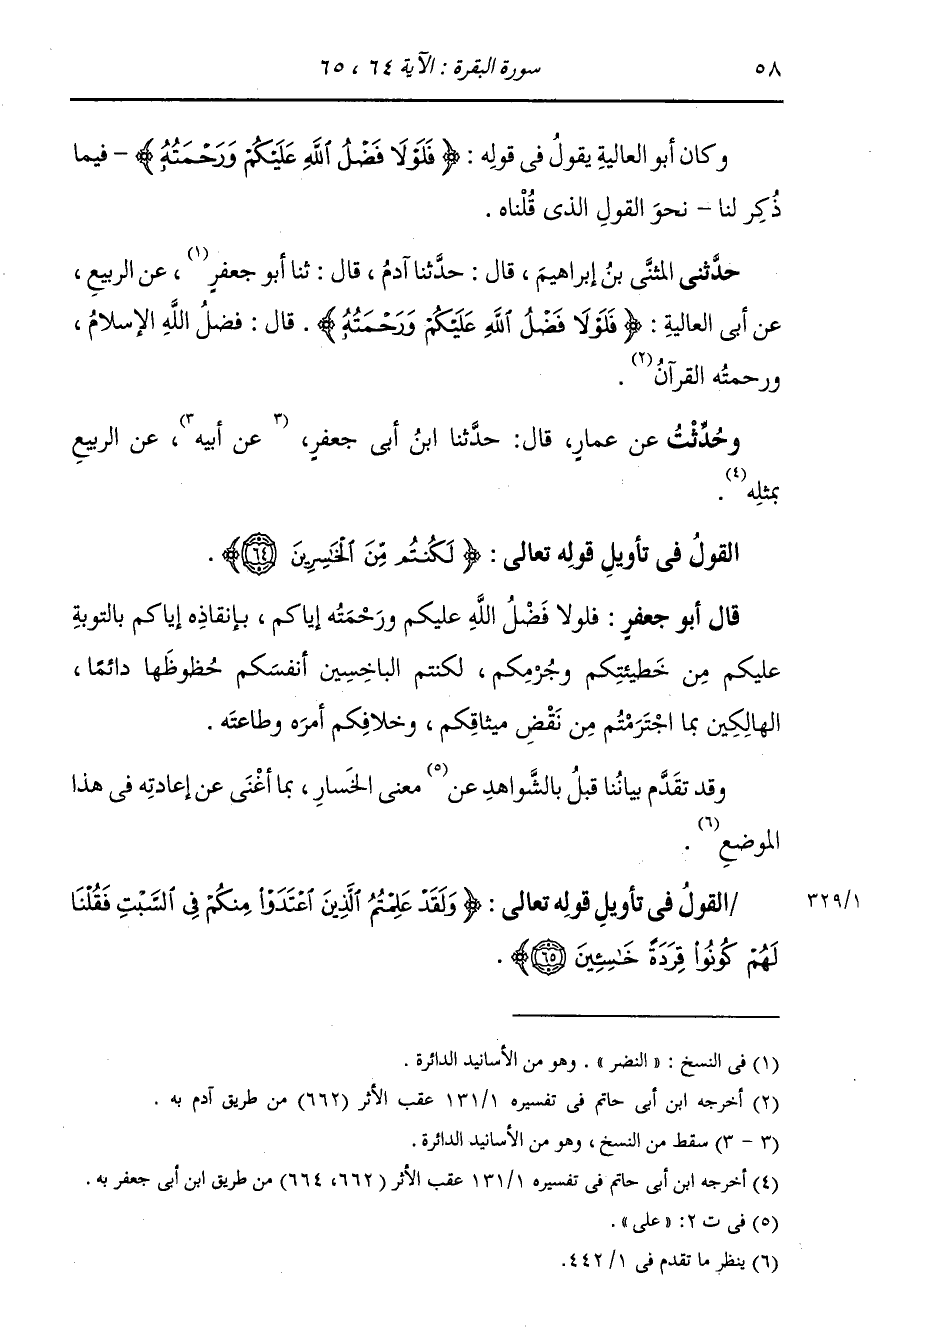 ٥٨
سورة البقرة : الآية ٦٤ ، ٦٥
وكان أبو العاليةِ يقولُ فى قولِه : ﴿ فَلَوْلَا فَضْلُ ٱللَّهِ عَلَيْكُمْ وَرَحْمَتُهُۥ ﴾ – فيما
ذُكِر لنا – نحوَ القولِ الذى قُلْناه .
حدَّثنى المثنَّى بنُ إبراهيمَ ، قال : حدَّثنا آدمُ ، قال : ثنا أبو جعفرٍ(١) ، عن الربيعِ ،
عن أبى العاليةِ : ﴿ فَلَوْلَا فَضْلُ ٱللَّهِ عَلَيْكُمْ وَرَحْمَتُهُۥ ﴾ . قال : فضلُ اللَّهِ الإسلامُ ،
ورحمتُه القرآنُ(٢) .
وحُدِّثْتُ عن عمارٍ، قال: حدَّثنا ابنُ أبى جعفرٍ، (٣ عن أبيه ٣)، عن الربيعِ
بمثلِه(٤) .
القولُ فى تأويلِ قولِه تعالى : ﴿ لَكُنتُم مِّنَ ٱلْخَٰسِرِينَ ٦٤ ﴾ .
قال أبو جعفرٍ : فلولا فَضْلُ اللَّهِ عليكم ورَحْمَتُه إياكم ، بإنقاذِه إياكم بالتوبةِ
عليكم مِن خَطيئتِكم وجُرْمِكم ، لكنتم الباخِسِين أنفسَكم حُظوظَها دائمًا ،
الهالِكِين بما اجْتَرَمْتُم مِن نَقْضِ ميثاقِكم ، وخلافِكم أمرَه وطاعتَه .
وقد تقَدَّم بيانُنا قبلُ بالشَّواهدِ عن(٥) معنى الخَسارِ ، بما أغْنَى عن إعادتِه فى هذا
الموضعِ(٦) .
/القولُ فى تأويلِ قولِه تعالى : ﴿ وَلَقَدْ عَلِمْتُمُ ٱلَّذِينَ ٱعْتَدَوْا۟ مِنكُمْ فِى ٱلسَّبْتِ فَقُلْنَا
٣٢٩/١
لَهُمْ كُونُوا۟ قِرَدَةً خَٰسِـِٔينَ ٦٥ ﴾ .
(١) فى النسخ : « النضر » . وهو من الأسانيد الدائرة .
(٢) أخرجه ابن أبى حاتم فى تفسيره ١٣١/١ عقب الأثر (٦٦٢) من طريق آدم به .
(٣ – ٣) سقط من النسخ ، وهو من الأسانيد الدائرة .
(٤) أخرجه ابن أبى حاتم فى تفسيره ١٣١/١ عقب الأثر (٦٦٢، ٦٦٤) من طريق ابن أبى جعفر به .
(٥) فى ت ٢: « على » .
(٦) ينظر ما تقدم فى ٤٤٢/١.